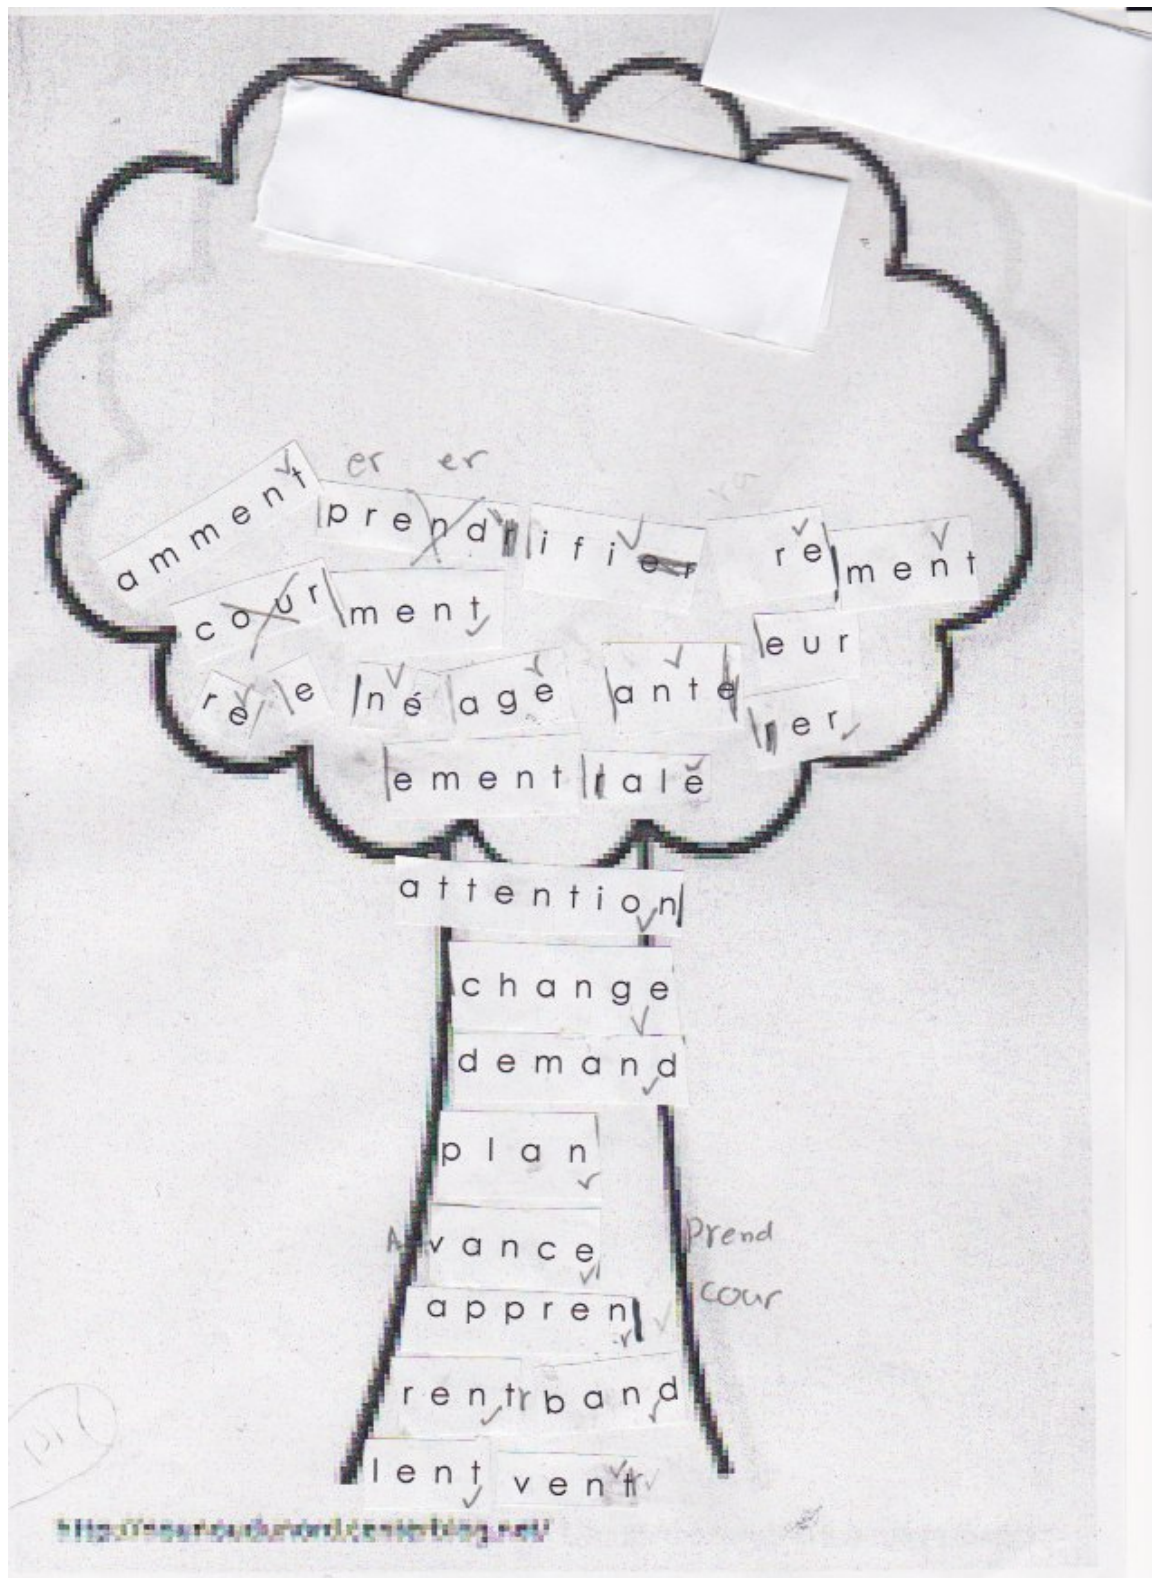 er er
amment prend ifier re ment
cour ment eur
re e né age ante ner
ement rale
attention
change
demand
plan
A vance Prend
appren cour
rentr band
lent vent